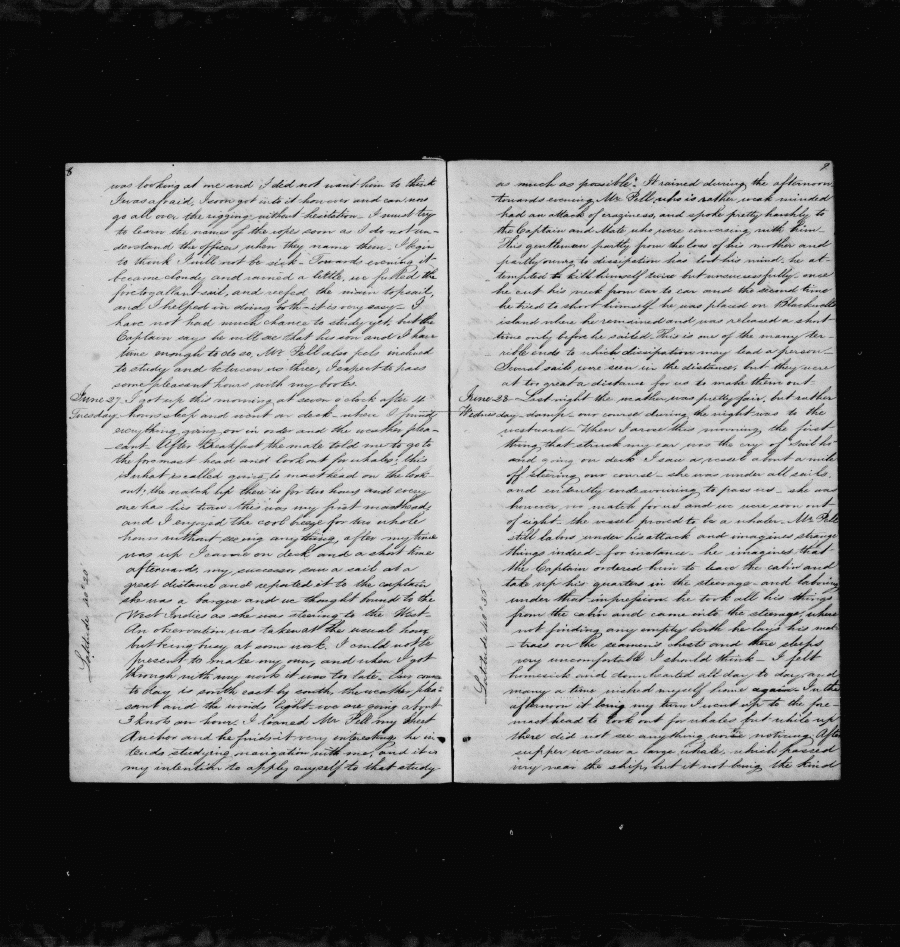 8
was looking at me and I did not want him to think
I was afraid, I soon got into it however and can now
go all over the rigging without hesitation. I must try
to learn the names of the ropes soon as I do not un-
derstand the officers when they name them. I begin
to think I will not be sick. Toward evening it
became cloudy and rained a little, we furled the
foretogallant sail, and reefed the mizen topsail,
and I helped in doing both - it is very easy - I
have not had much chance to study yet, but the
Captain says he will see that his son and I have
time enough to do so, Mr. Pell also feels inclined
to study and between us three, I expect to pass
some pleasant hours with my books.
June 27. I got up this morning at seven o'clock after 4
Tuesday hours sleep and went on deck when I found
everything going on in order and the weather plea-
sant. After breakfast the mate told me to go to
the foremast head and look out for whales, this
is what is called going to mast head on the look
out; the watch up there is for two hours and every
one has his turn this was my first masthead,
and I enjoyed the cool breeze for two whole
hours without seeing anything, after my time
was up I came on deck and a short time
afterward, my successor saw a sail at a
great distance and reported it to the captain
she was a barque and we thought bound to the
West Indies as she was steering to the West-
An observation was taken at the usual hour
but being busy at some work I could not be
present to make my own, and when I got
through with my work it was too late - Our course
to day is south east by south the weather plea-
sant and the winds light - we are going about
3 knots an hour. I loaned Mr Pell my Sheet
Anchor and he finds it very interesting, he in-
tends studying navigation with me, and it is
my intention to apply myself to that study
Latitude 40° 20'
9
as much as possible. It rained during the afternoon
towards evening Mr. Pell who is rather weak minded
had an attack of craziness, and spoke pretty harshly to
the Captain and Mate who were conversing with him
This gentleman partly from the loss of his mother and
partly owing to dissipation has lost his mind. he at-
tempted to kill himself twice but unsuccessfully once
he cut his neck from ear to ear and the second time
he tried to shoot himself he was placed on Blackwells
island where he remained and was released a short
time only before he sailed. This is one of the many ter-
rible ends to which dissipation may lead a person-
Several sails were seen in the distance, but they were
at too great a distance for us to make them out.
June 28 - Last night the weather was pretty fair, but rather
Wednesday - damp. our course during the night was to the
westward. When I arose this morning the first
thing that struck my ear was the cry of "sail ho"
and going on deck I saw a vessel about a mile
off steering our course - she was under all sails
and evidently endeavoring to pass us - she was
however no match for us and we were soon out
of sight - the vessel proved to be a whaler. Mr. Pell
still labors under his attack and imagines strange
things indeed - for instance - he imagines that
the Captain ordered him to leave the cabin and
take up his quarters in the steerage - and laboring
under that impression he took all his things
from the cabin and came into the steerage, where
not finding any empty berth he laid his mat-
-trass on the seamen's chests and there sleeps
very uncomfortable I should think - I felt
homesick and downhearted all day to day, and
many a time wished myself home again. In the
afternoon it being my turn I went up to the fore
mast head to look out for whales but while up
there did not see anything worth noticing. After
supper we saw a large whale, which passed
very near the ship, but it not being the kind
Latitude 40° 35'